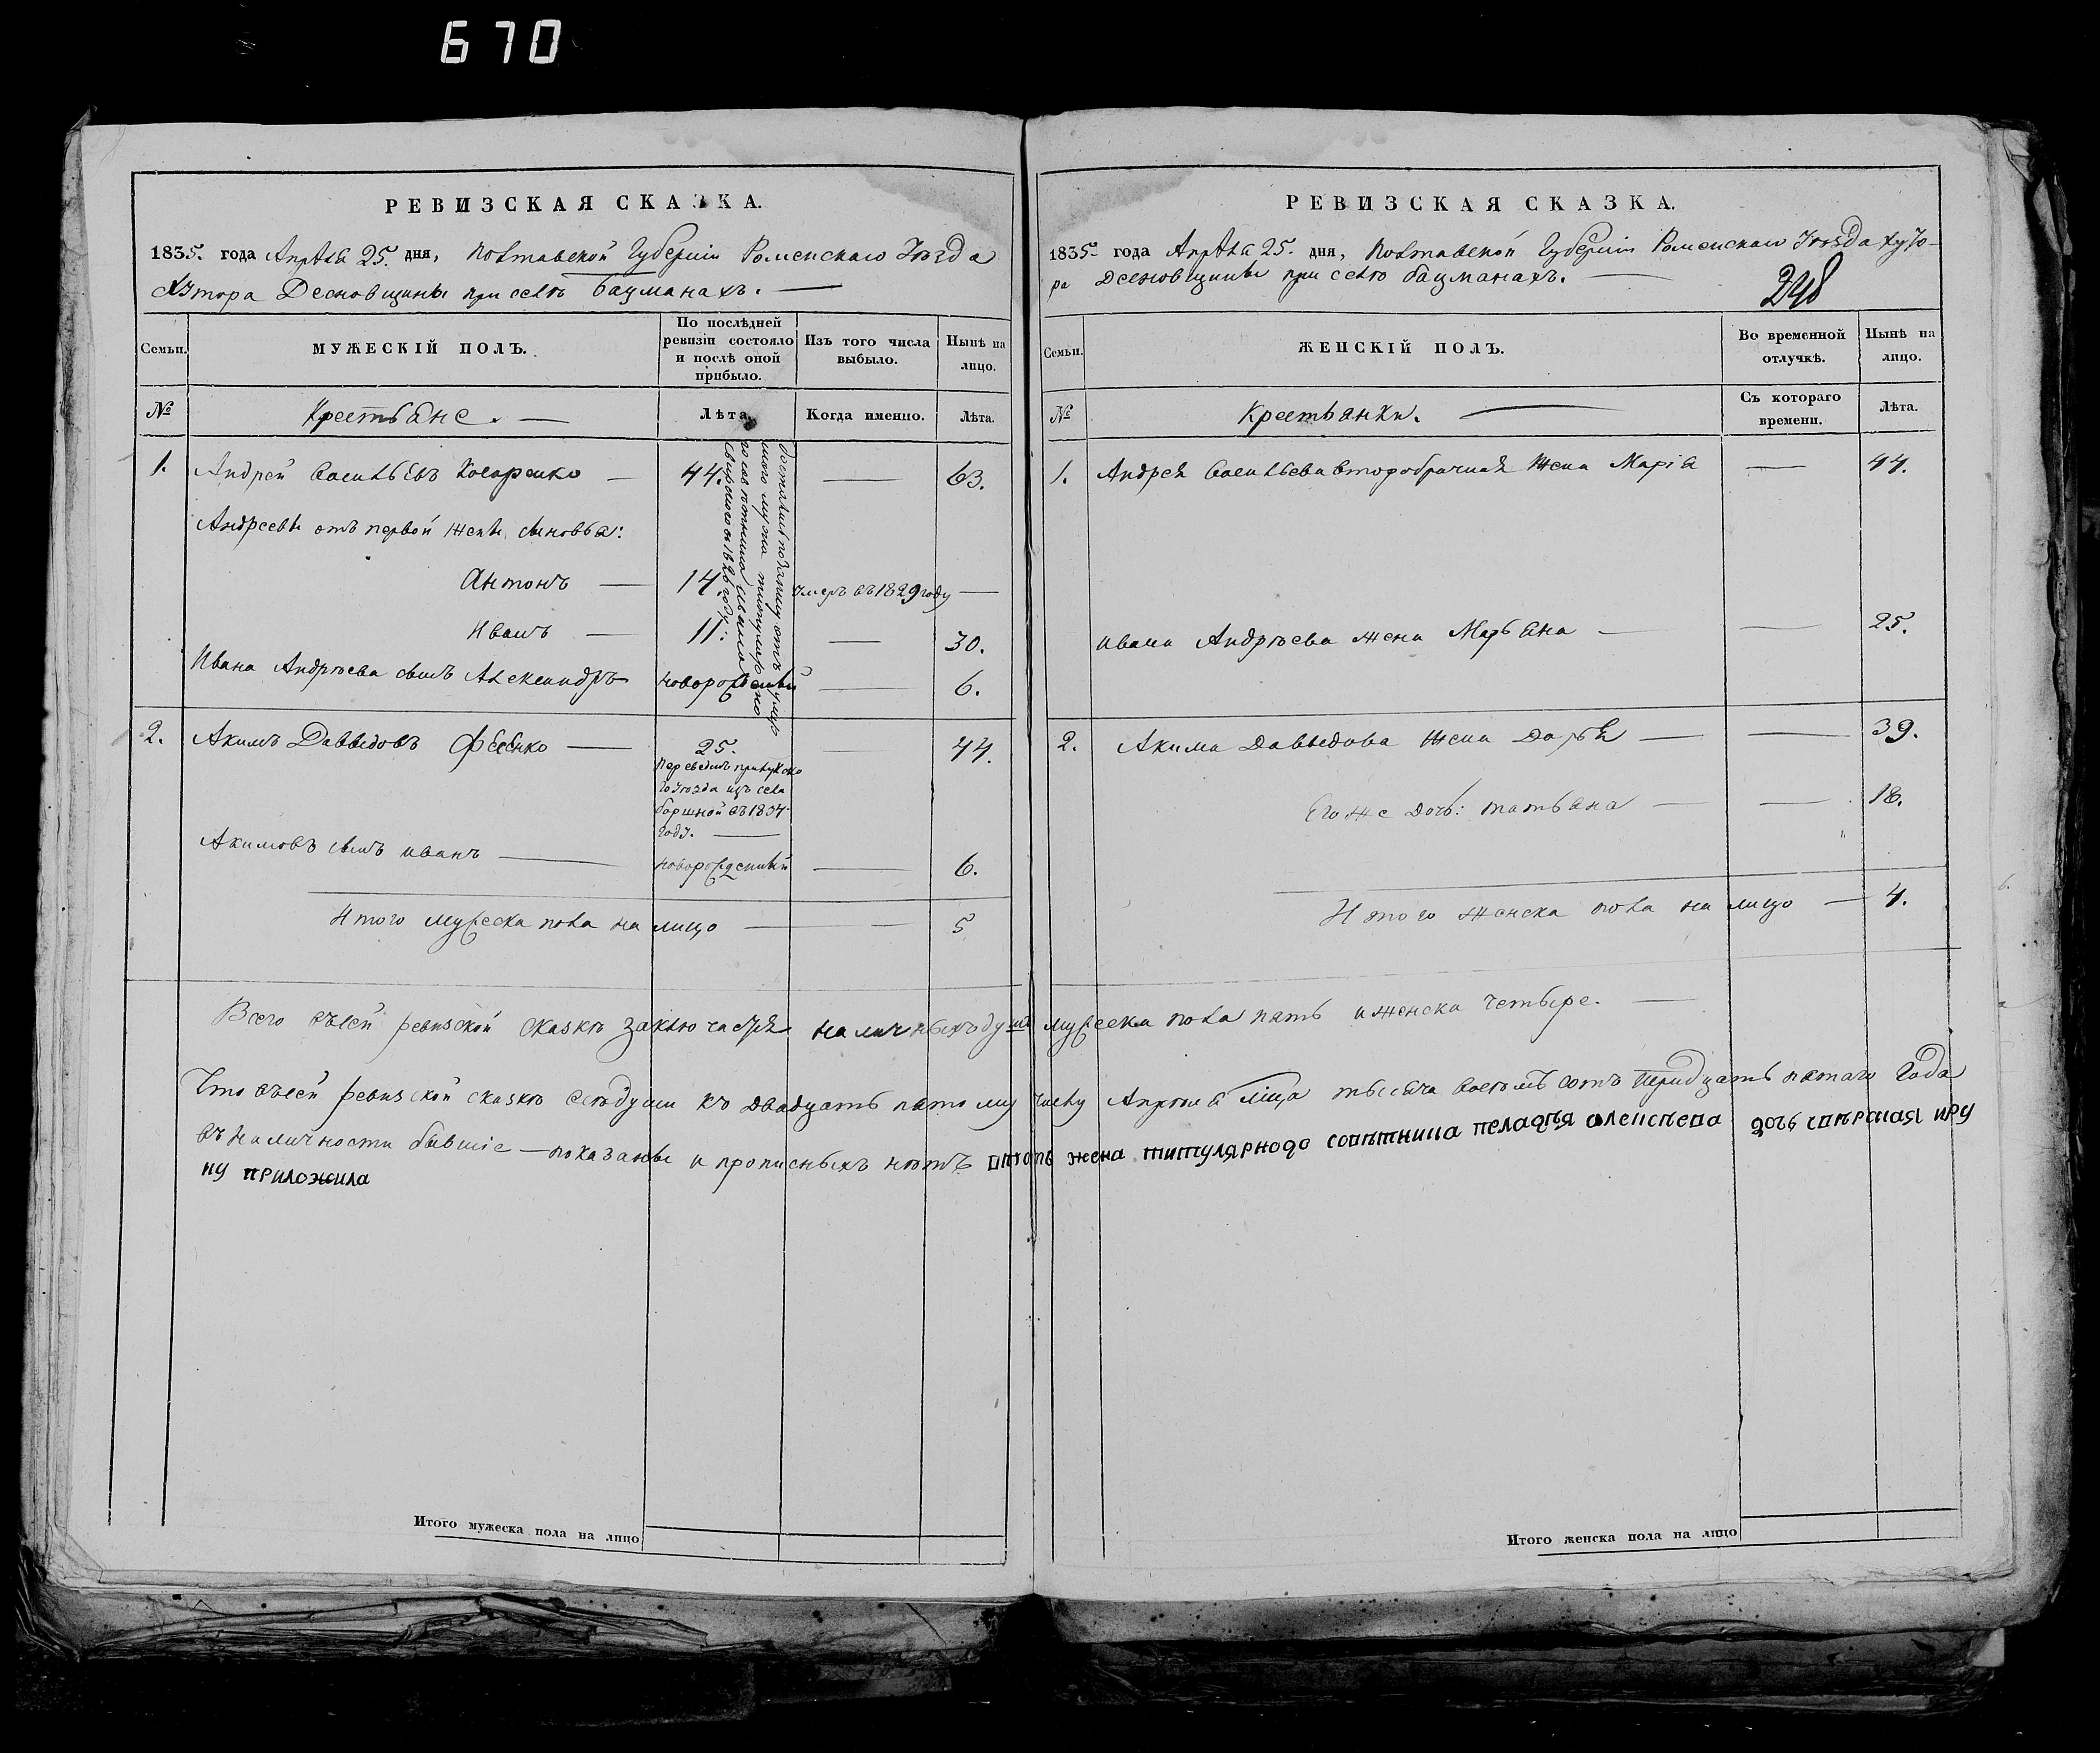 670
РЕВИЗСКАЯ СКАЗКА.
1835. года Апрѣля 25. дня, Полтавской Губерніи Роменскаго Уѣзда
Хутора Десновщины при селѣ Бацманахъ. —
Семьи.
МУЖЕСКІЙ ПОЛЪ.
По послѣдней ревизіи состояло и послѣ оной прибыло.
Изъ того числа выбыло.
Нынѣ на лицо.
№
Крестьяне. —
Лѣта.
Когда именно.
Лѣта.
1. Андрей Васильевъ Косаренко — 44. — 63.
Андреевы отъ первой жены сыновья:
Антонъ — 14. умеръ въ 1829 году —
Иванъ — 11. — 30.
Ивана Андрѣева сынъ Александръ новорожденный — 6.
2. Акимъ Давыдовъ Фесенко — 25. — 44.
переведенъ прилукско
го уѣзда изъ села
 въ 1834
году. —
Акимовъ сынъ Иванъ — новорожденный — 6.
Итого мужеска пола на лицо — — 5
РЕВИЗСКАЯ СКАЗКА.
1835 года Апрѣля 25. дня, Полтавской Губерніи Роменскаго Уѣзда хуто-
ра Десновщины при селѣ бацманахъ. —
248
Семьи.
ЖЕНСКІЙ ПОЛЪ.
Во временной отлучкѣ.
Нынѣ на лицо.
№
Крестьянки. —
Съ котораго времени.
Лѣта.
1. Андрея Васильева второбрачная жена Марія — 44.
Ивана Андрѣева жена Марьяна — — 25.
2. Акима Давыдова жена Дарья — — 39.
Его же дочь: татьяна — — 18.
Итого женска пола на лицо — 4.
Всего въ сей ревизской сказкѣ заключается наличныхъ душъ мужеска пола пять и женска четыре. —
Что въ сей ревизской сказкѣ всѣ души къ двадцать пятому числу Апрѣля мѣсяца тысяча восемь сотъ тридцать пятаго года
въ наличности бывшіе — показаны и прописныхъ нѣтъ жена титулярнодо совѣтника пеладѣя алексѣева дочь свѣрская иру
ну приложила
Итого мужеска пола на лицо
Итого женска пола на лицо